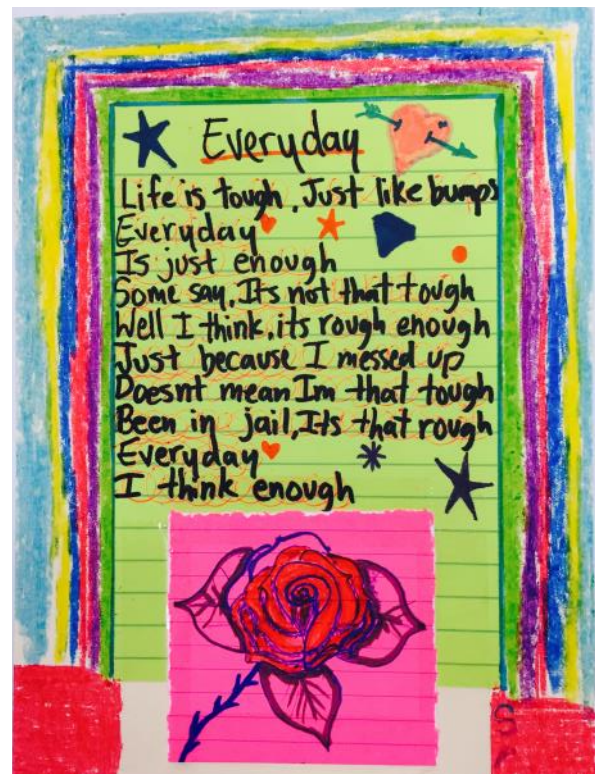 Everyday
Life is tough, Just like bumps
Everyday
Is just enough
Some say, Its not that tough
Well I think, its rough enough
Just because I messed up
Doesnt mean Im that tough
Been in jail, Its that rough
Everyday
I think enough
S